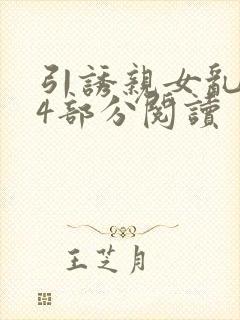 引誘親女亂
4部分閱讀
王芝月